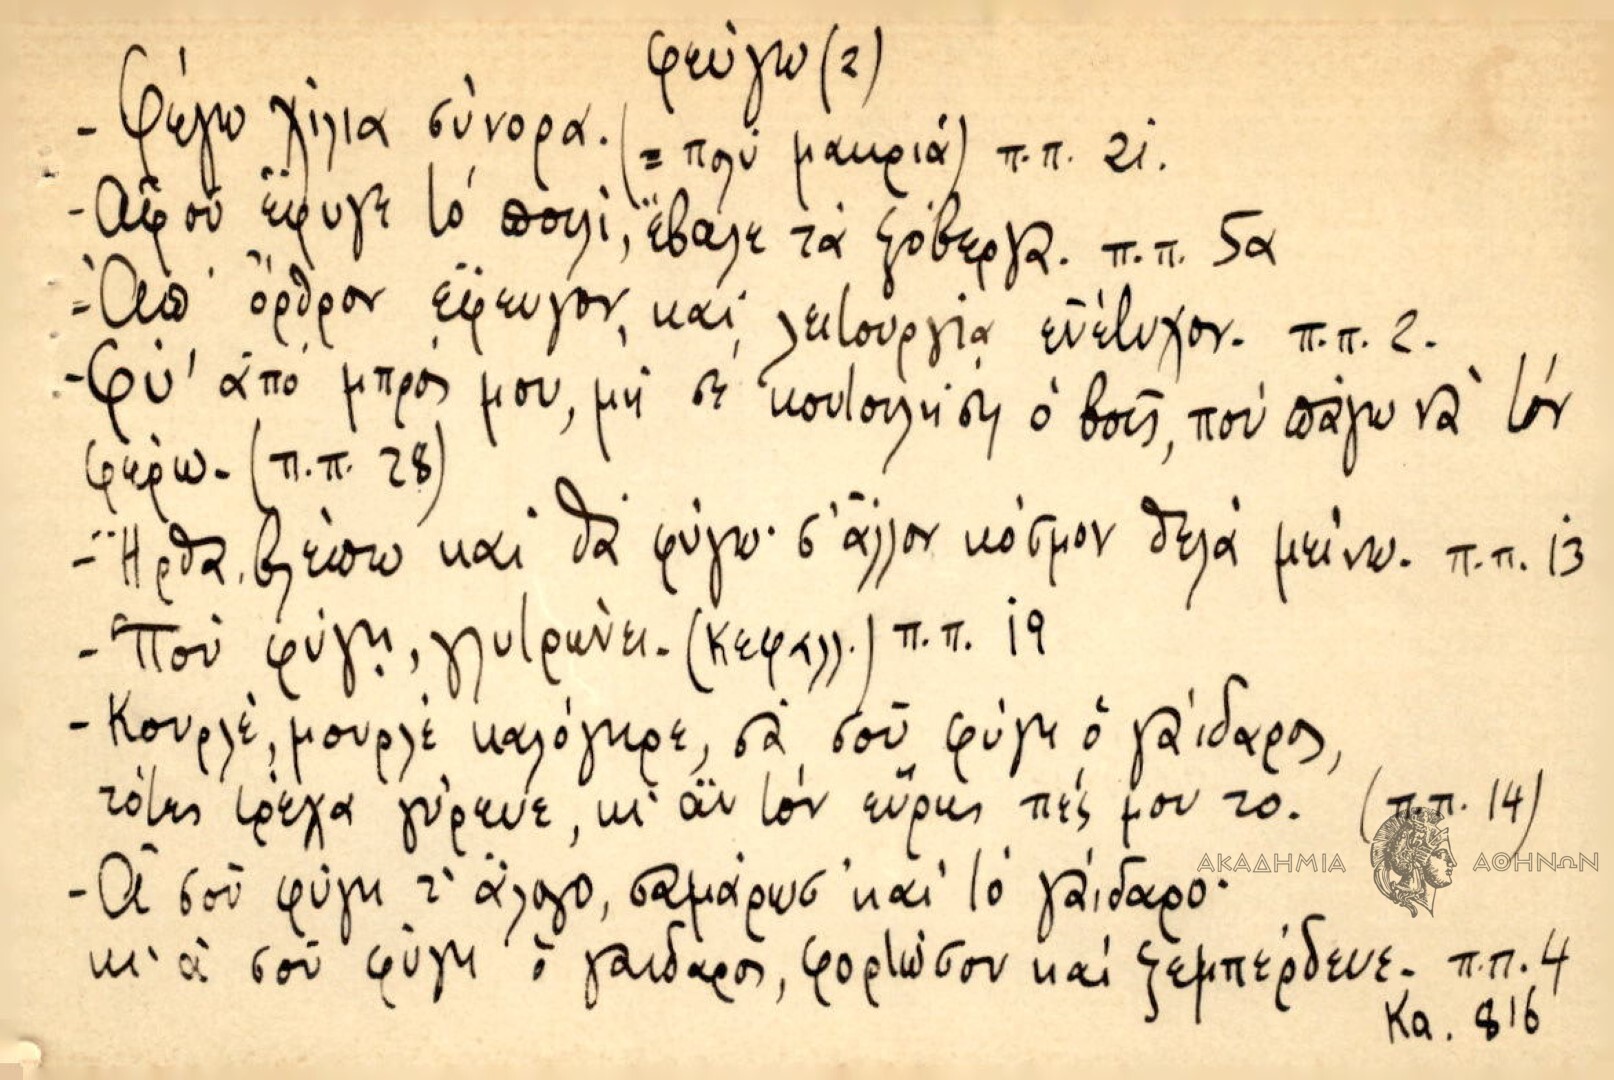 φεύγω (2)
- Φεύγω χίλια σύνορα. (= πολύ μακριά) π.π. 21.
- Ἀφοῦ ἔφυγε τό πουλί, ἔβαλε τά ξόβεργα. π.π. 5α
- Ἀπ' ὄρθρον ἔφευγον, καί λειτουργία ἐπέτυχον. π.π. 2.
- Φύ' ἀπό μπρός μου, μή σέ κουτουλήση ὁ βοῦς, πού πάγω νά τόν
φέρω. (π.π. 28)
- Ἦρθα, βλέπω καί θά φύγω· σ' ἄλλον κόσμον θελά μείνω. π.π. 13
- Ποῦ φύγῃ, γλυτρώνει. (Κεφαλλ.) π.π. 19
- Κουρλέ, μουρλέ καλόγερε, σά σοῦ φύγη ὁ γάιδαρος,
τότες τρέχα γύρευε, κι' ἄν τόν εὕρῃς πές μου το. (π.π. 14)
- Ἄ σοῦ φύγη τ' ἄλογο, σαμάρωσ' καί τό γάιδαρο·
κι' ἄ σοῦ φύγη ὁ γάιδαρος, φορτώσου καί ξεμπέρδευε. π.π. 4
Κα. 816
ΑΚΑΔΗΜΙΑ ΑΘΗΝΩΝ